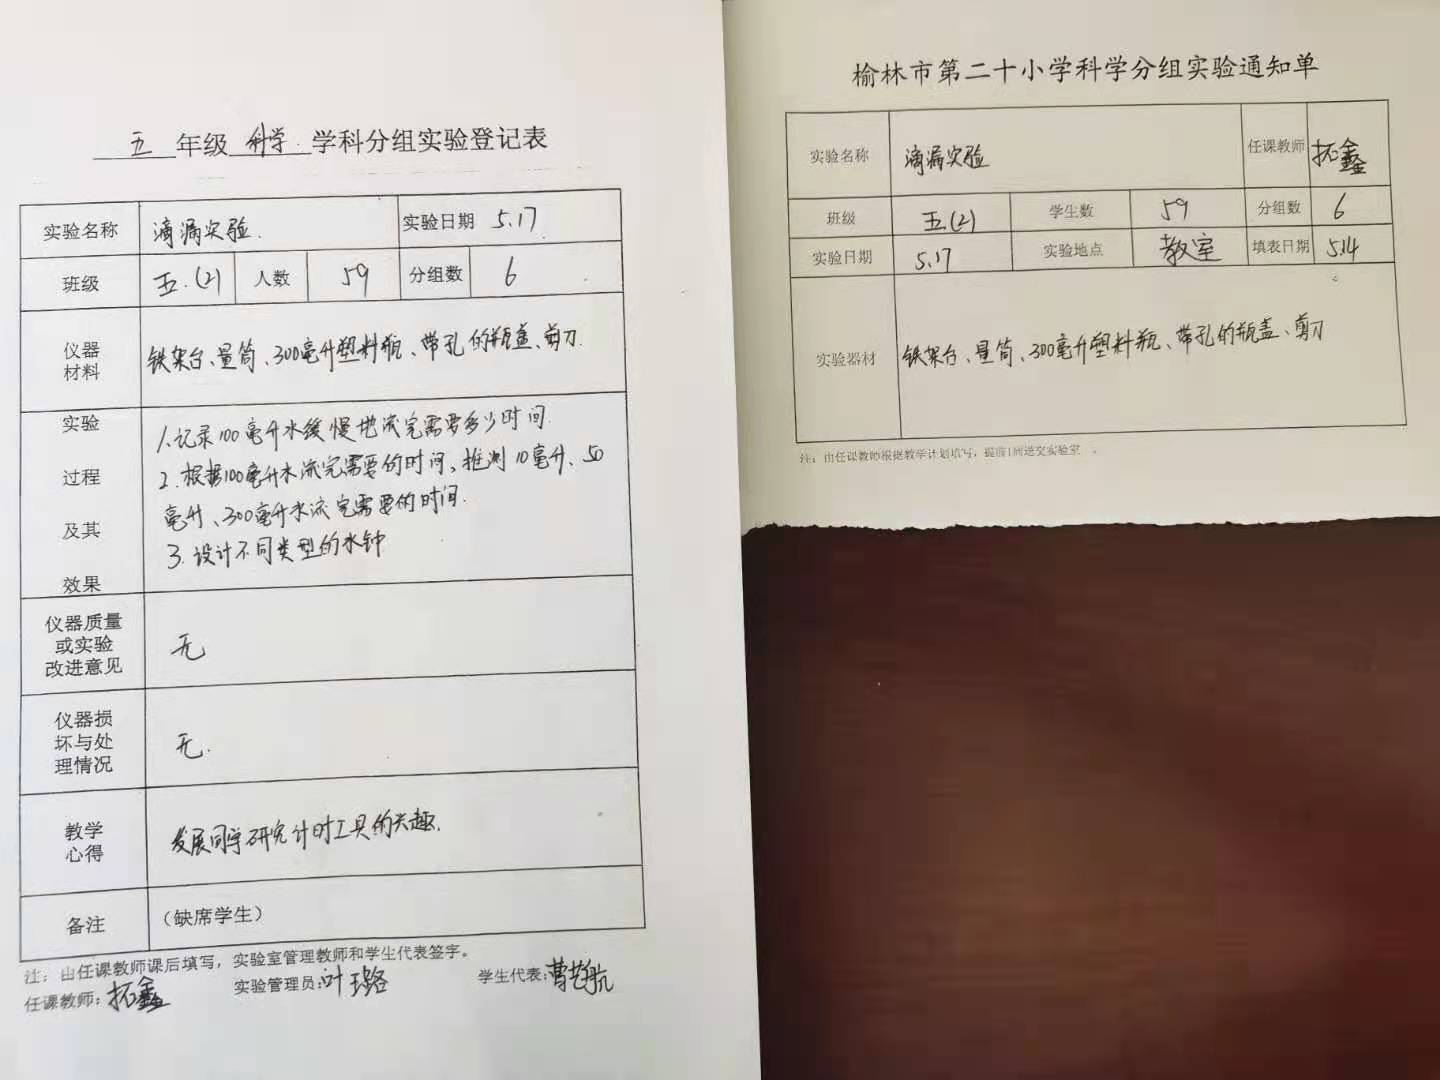 五年级科学.学科分组实验登记表
实验名称 滴漏实验. 实验日期 5.17
班级 五.(2) 人数 59 分组数 6
仪器
材料
铁架台、量筒、300毫升塑料瓶、带孔的瓶盖、剪刀.
实验
过程
及其
效果
1.记录100毫升水缓慢地流完需要多少时间.
2.根据100毫升水流完需要的时间、推测10毫升、50
毫升、300毫升水流完需要的时间.
3.设计不同类型的水钟
仪器质量
或实验
改进意见
无
仪器损
坏与处
理情况
无.
教学
心得
发展同学研究计时工具的兴趣.
备注 (缺席学生)
注:由任课教师课后填写,实验室管理教师和学生代表签字。
任课教师:拓鑫 实验管理员:叶璐 学生代表:曹艺航
榆林市第二十小学科学分组实验通知单
实验名称 滴漏实验 任课教师 拓鑫
班级 五.(2) 学生数 59 分组数 6
实验日期 5.17 实验地点 教室 填表日期 5.14
实验器材 铁架台、量筒、300毫升塑料瓶、带孔的瓶盖、剪刀
注:由任课教师根据教学计划填写,提前1周送交实验室 。